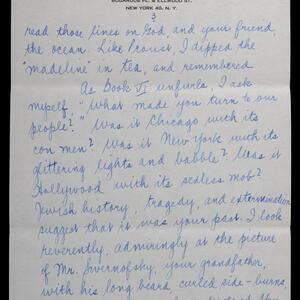 BOGARDUS PL. & ELLWOOD ST.
NEW YORK 40, N. Y.
3
read those lines on God and your friend,
the ocean. Like Proust, I dipped the
"madeline" in tea, and remembered
As Book VI unfurls, I ask
myself, "What made you turn to our
people?" Was it Chicago with its
con men? Was it New York with its
glittering lights and babble? Was it
Hollywood with its sexless mob?
Jewish history, tragedy, and extermination
suggest that it was your past. I look
reverently, admiringly at the picture
of Mr. Swernofsky, your grandfather,
with his long beard, curled side-burns,